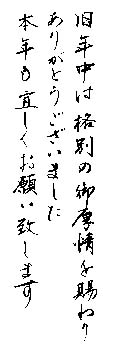 旧年中は格別の御厚情を賜わり
ありがとうございました
本年も宜しくお願い致します